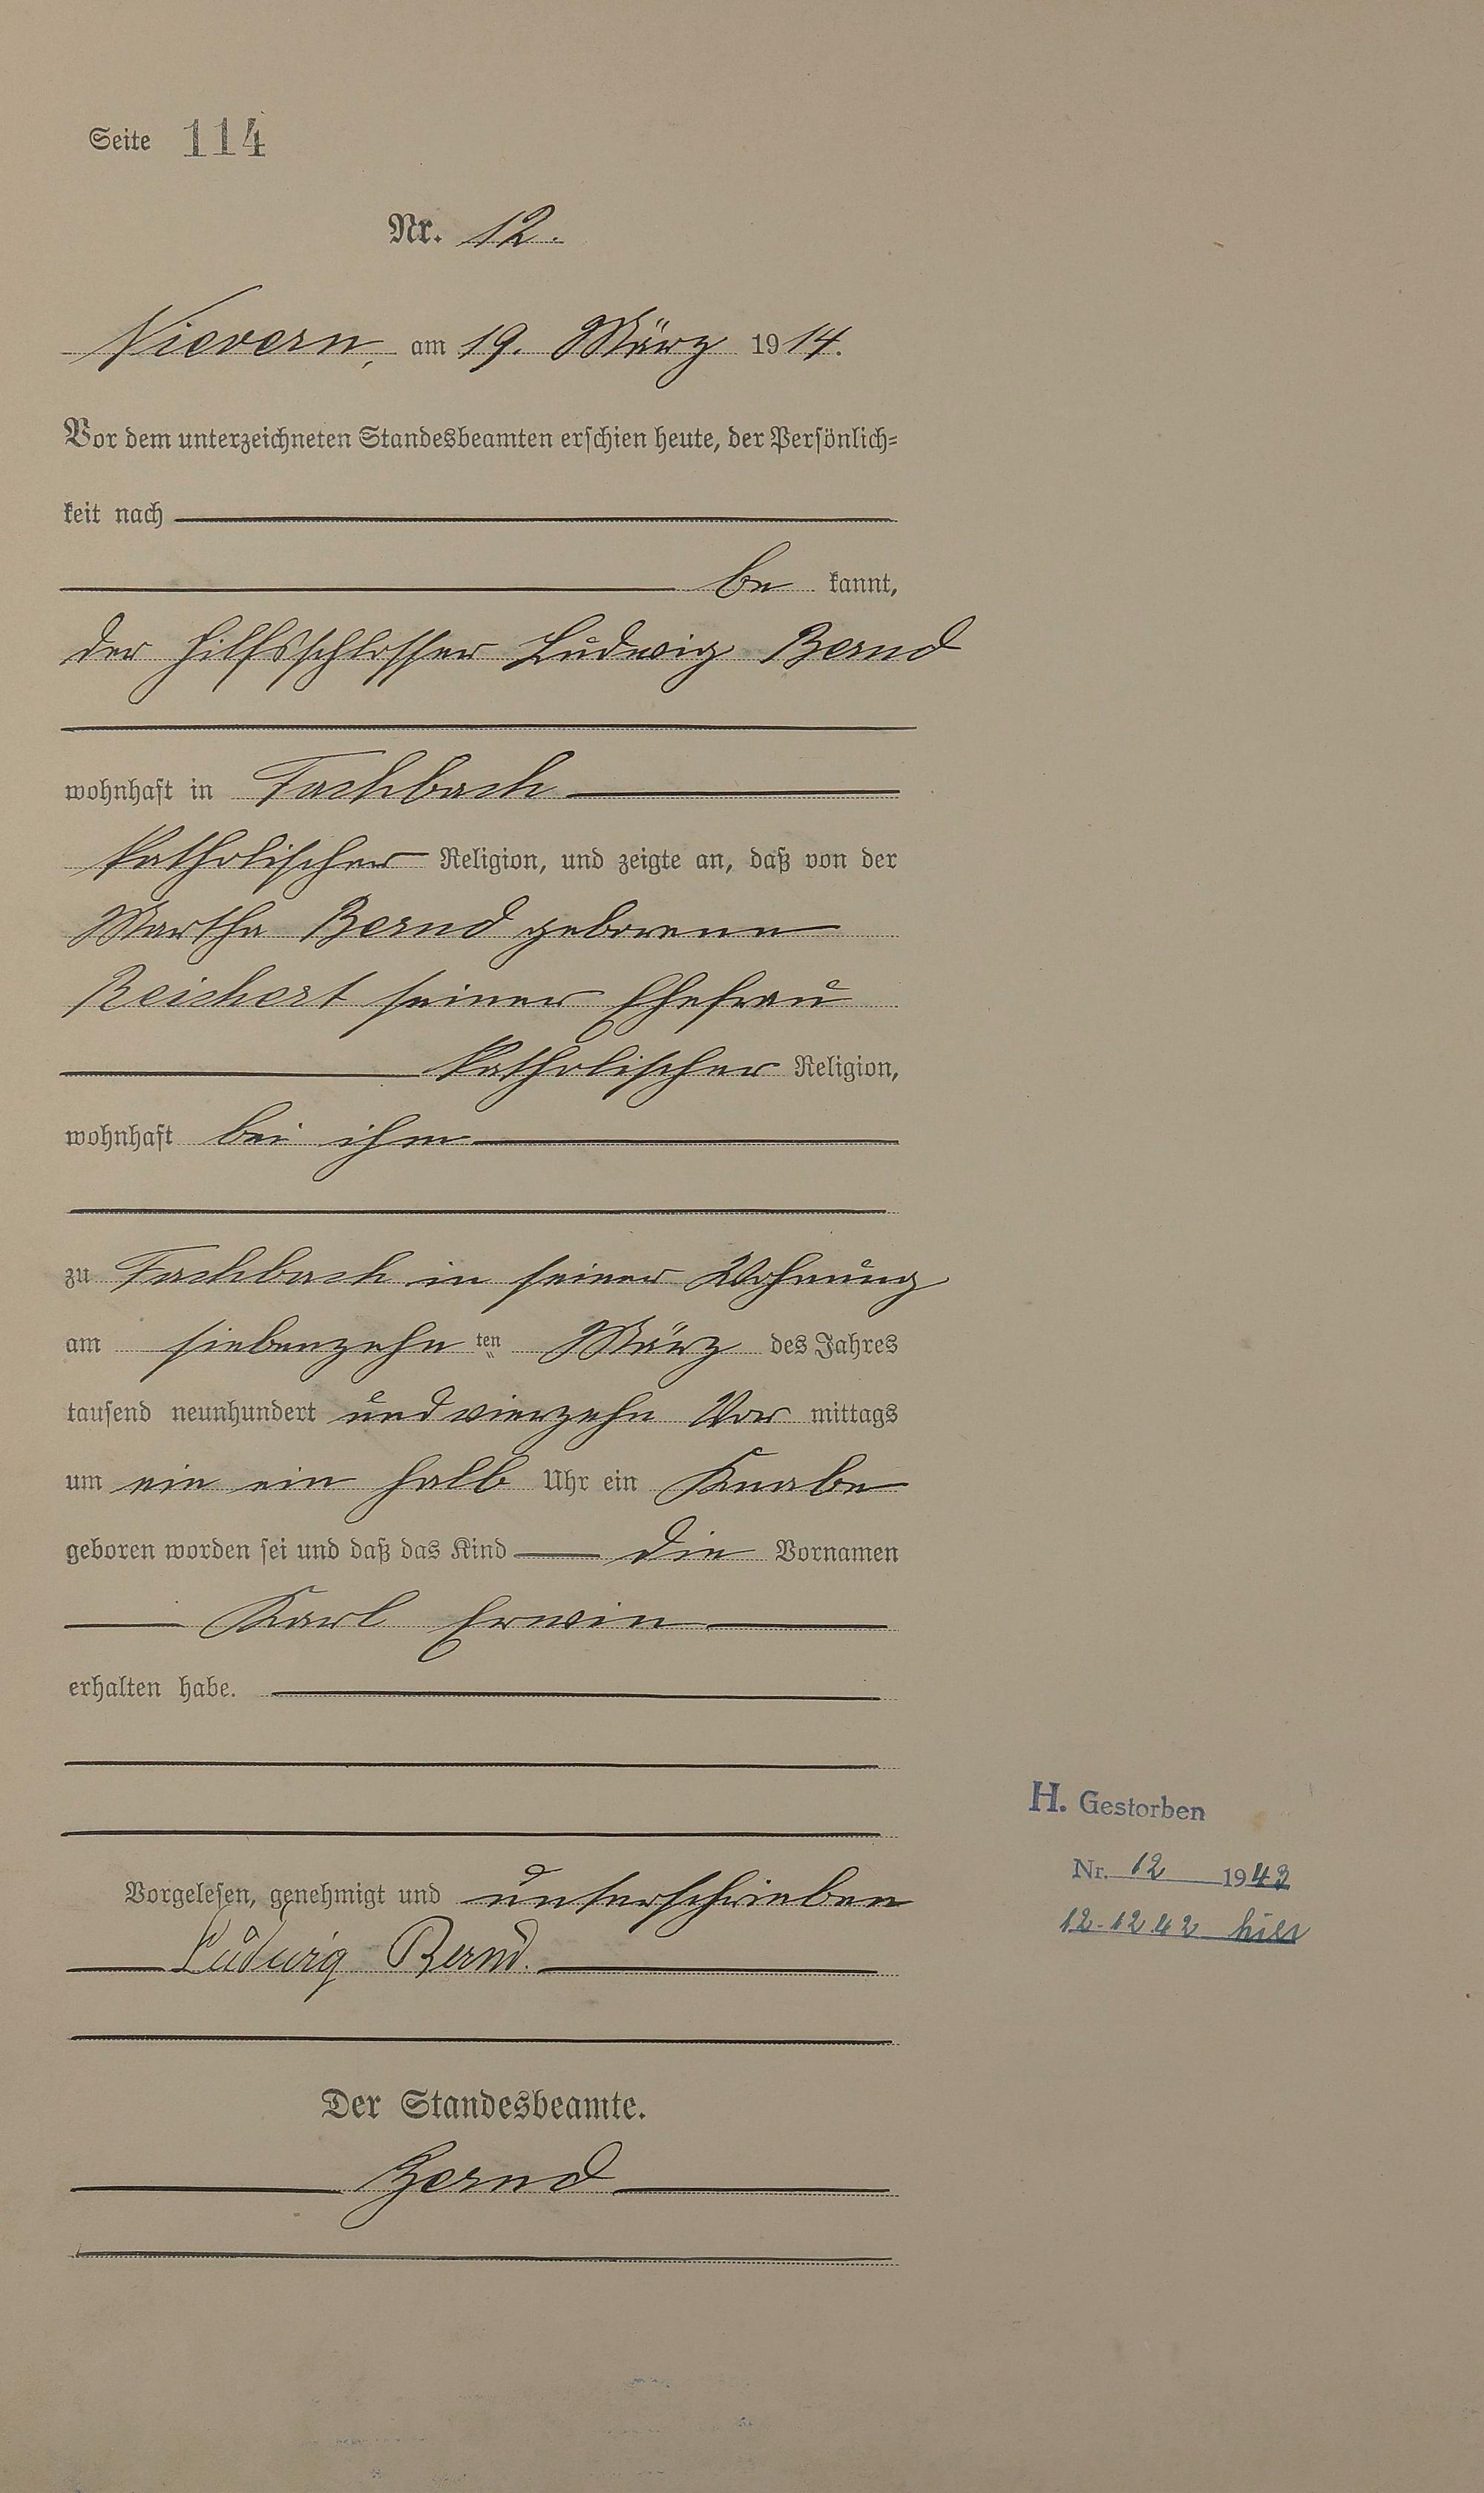 Seite 114
Nr. 12.
Nievern, am 19. März 1914.
Vor dem unterzeichneten Standesbeamten erschien heute, der Persönlich=
keit nach
be kannt,
der Hilfsschlosser Ludwig Bernd
wohnhaft in Fachbach
katholischer Religion, und zeigte an, daß von der
Martha Bernd geborene
Reichert seiner Ehefrau
katholischer Religion,
wohnhaft bei ihm
zu Fachbach in seiner Wohnung
am siebenzehn ten März des Jahres
tausend neunhundert und vierzehn Vor mittags
um ein ein halb Uhr ein Knabe
geboren worden sei und daß das Kind die Vornamen
Karl Erwin
erhalten habe.
Vorgelesen, genehmigt und unterschrieben
Ludwig Bernd.
Der Standesbeamte.
Bernd
H. Gestorben
Nr. 12 1943
12-12 42 hier